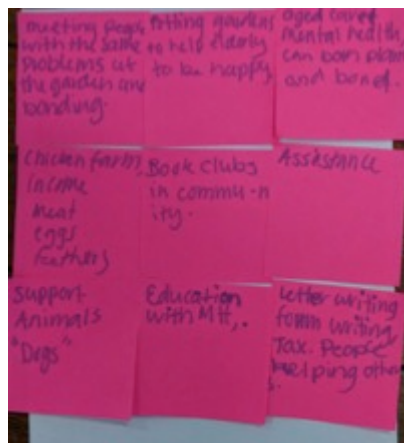 meeting people
with the same
problems at
the garden and
bonding.
Potting gardens
to help elderly
to be happy
aged care,
Mental health,
can both plant
and bond.
Chicken farm,
income
meat
eggs
feathers
Book Clubs
in commu-n
ity.
Assistance
Support
Animals
"Dogs"
Education
with MH,.
Letter writing
form writing
Tax. People
helping other